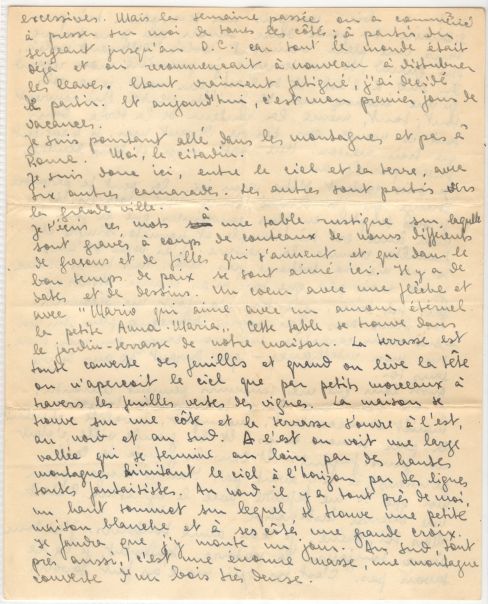 excessives. Mais la semaine passée on a commencé
à presser sur moi de tous les côtés: à partir du
sergeant jusqu'au O.C. car tout le monde était
déjà et on recommençait à nouveau à distribuer
les leaves. Etant vraiment fatigué, j'ai décidé
de partir. Et aujourd'hui, c'est mon premier jour de
vacances.
Je suis pourtant allé dans les montagnes et pas à
Rome. Moi, le citadin.
Je suis donc ici, entre le ciel et la terre, avec
six autres camarades. Les autres sont partis vers
la grande ville.
Je t'écris ces mots à une table rustique sur laquelle
sont gravés à coups de couteaux de noms différents
de garçons et de filles qui s'aiment et qui dans le
bon temps de paix se sont aimé ici. Il y a de
dates et de dessins. Un coeur avec une flèche et
avec "Mario qui aime avec un amour éternel
la petite Anna-Maria". Cette table se trouve dans
le jardin-terrasse de notre maison. La terrasse est
toute couverte des feuilles et quand on lève la tête
on n'aperçoit le ciel que par petits morceaux à
travers les feuilles vertes des vignes. La maison se
trouve sur une côte et la terrasse s'ouvre à l'est,
au nord et au sud. A l'est on voit une large
vallée qui se termine au loin par des hautes
montagnes limitant le ciel à l'horizon par des lignes
toutes fantaisistes. Au nord il y a tout près de moi
un haut sommet sur lequel se trouve une petite
maison blanche et à ses côtés une grande croix.
Il faudra que j'y monte un jour. Au sud, tout
près aussi, c'est une énorme masse, une montagne
couverte d'un bois très dense.